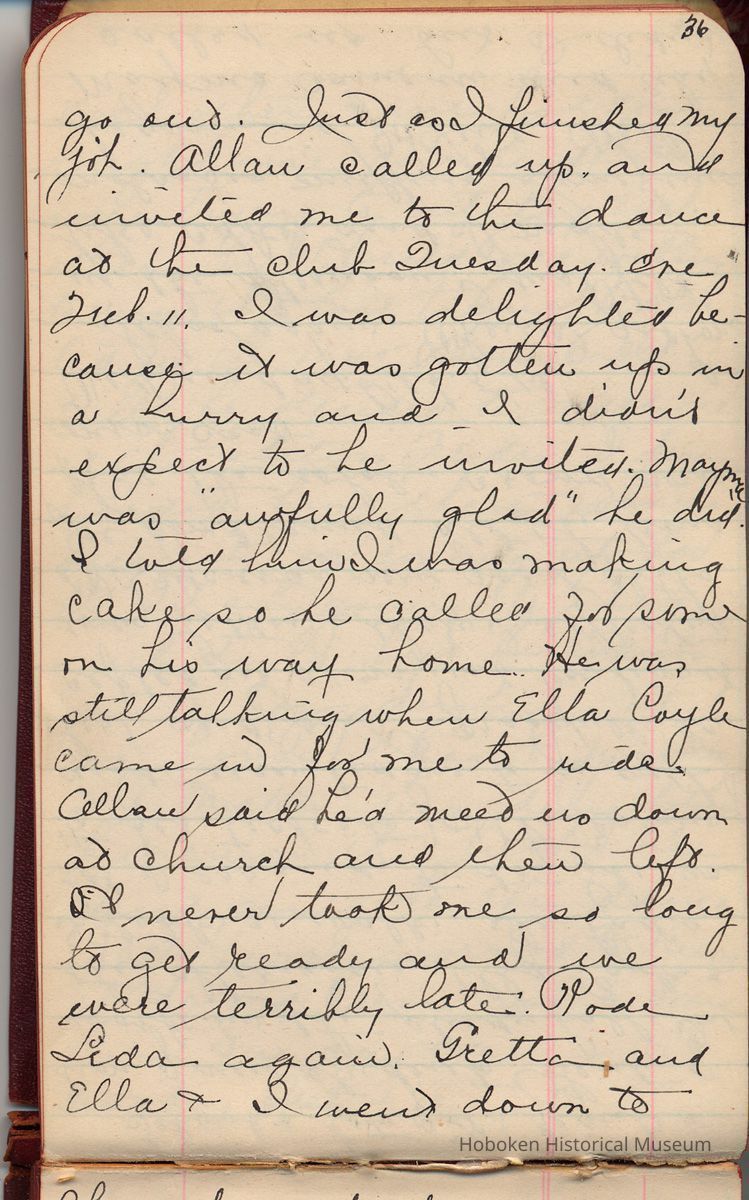 36
go out. Just as I finished my
job. Allan called up. and
invited me to the dance
at the club Tuesday. Eve
Feb. 11. I was delighted be-
cause it was gotten up in
a hurry and I didn't
expect to be invited. Mayme
was "awfully glad" he did.
I told him I was making
cake so he called for some
on his way home. He was
still talking when Ella Coyle
came in for me to ride.
Allan said he'd meet us down
at church and then left.
It never took me so long
to get ready and we
were terribly late. Rode
Leda again. Gretta and
Ella & I went down to
Hoboken Historical Museum